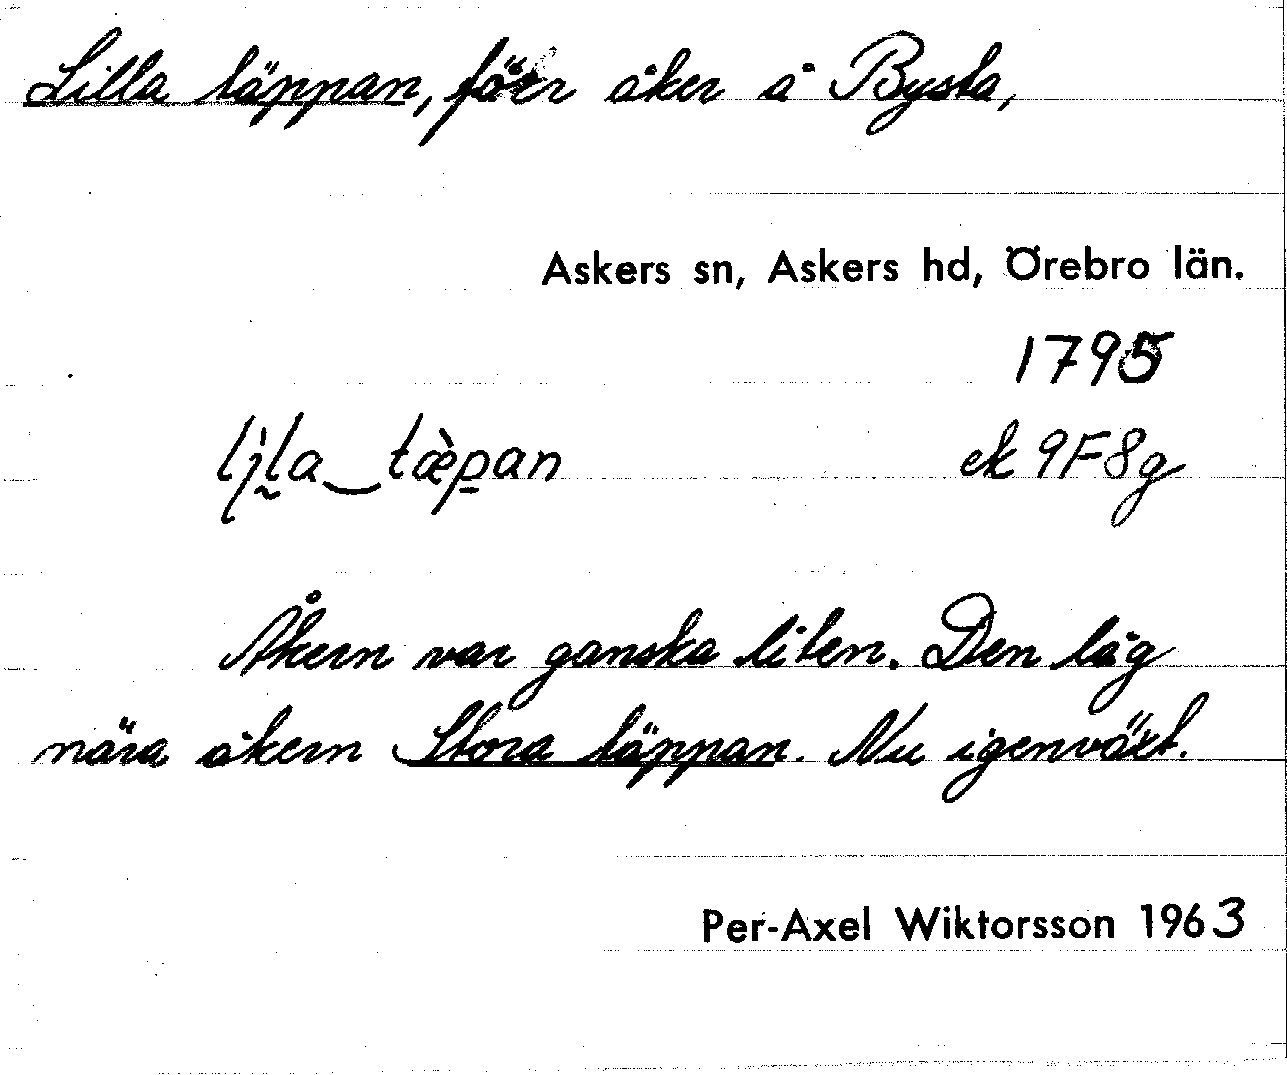 Lilla täppan, för åker å Bysta,
Askers sn, Askers hd, Örebro län.
1795
lịla‿tæ̀pan ek 9F8g
Åkern var ganska liten. Den låg
nära åkern Stora täppan. Nu igenväxt.
Per-Axel Wiktorsson 1963